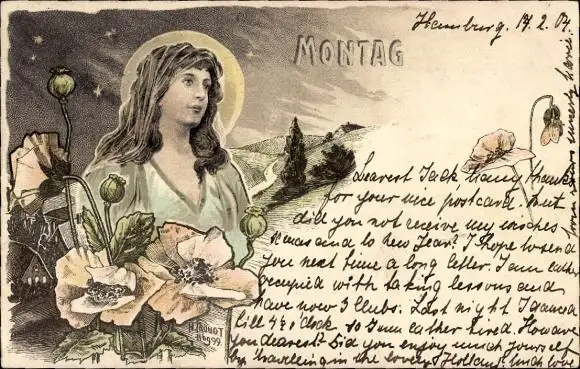 Hamburg. 17. 2. 04
MONTAG
Dearest Jack, many thanks
for your nice postcard. But
did you not receive my wishes
to Xmas and to New Year? I hope to send
you next time a long letter. I am rather
occupied with taking lessons and
have now 3 Clubs. Last night I danced
till 4½ o'clock so I am rather tired. How are
you dearest? Did you enjoy much yourself
by travelling in the lovely Holland? Much love
from yours sincerely